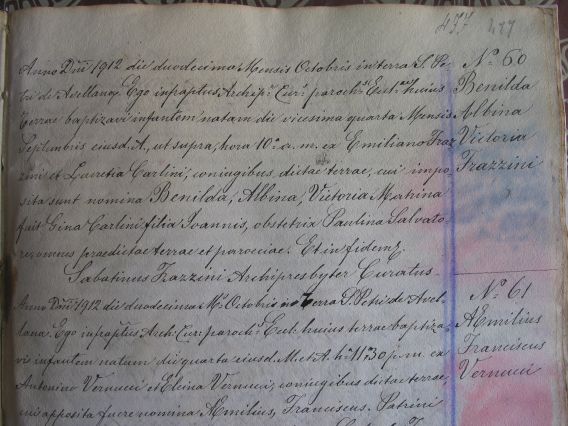 477 477
Anno Dni 1912 die duodecima Mensis Octobris in terra S. Pe-
tri de Avellana. Ego infraptus Archip.r Cur.s paroch.s Eccl.ae huius
terrae baptizavi infantem natam die vicesima quarta Mensis
Septembris eiusd. A., ut supra, hora 10.a a. m. ex Emiliano Fraz-
zini et Lucretia Carlini, coniugibus dictae terrae, cui impo-
sita sunt nomina Benilda, Albina, Victoria Matrina
fuit Gina Carlini filia Ioannis, obstetrix Paulina Salvato-
re, omnes praedictae terrae et paroeciae. Et in fidem
Sabatinus Frazzini Archipresbyter Curatus
N.o 60
Benilda
Albina
Victoria
Frazzini
Anno Dni 1912 die duodecima M.s Octobris in terra S. Petri de Avel-
lana. Ego infraptus Arch. Cur. paroch.s Eccl. huius terrae baptiza-
vi infantem natum die quarta eiusd. M. et A. h. 11.30 p. m. ex
Antonino Vernucci et Elcina Vernucci, coniugibus dictae terrae,
cui apposita fuere nomina AEmilius, Franciscus. Patrini
N.o 61
AEmilius
Franciscus
Vernucci